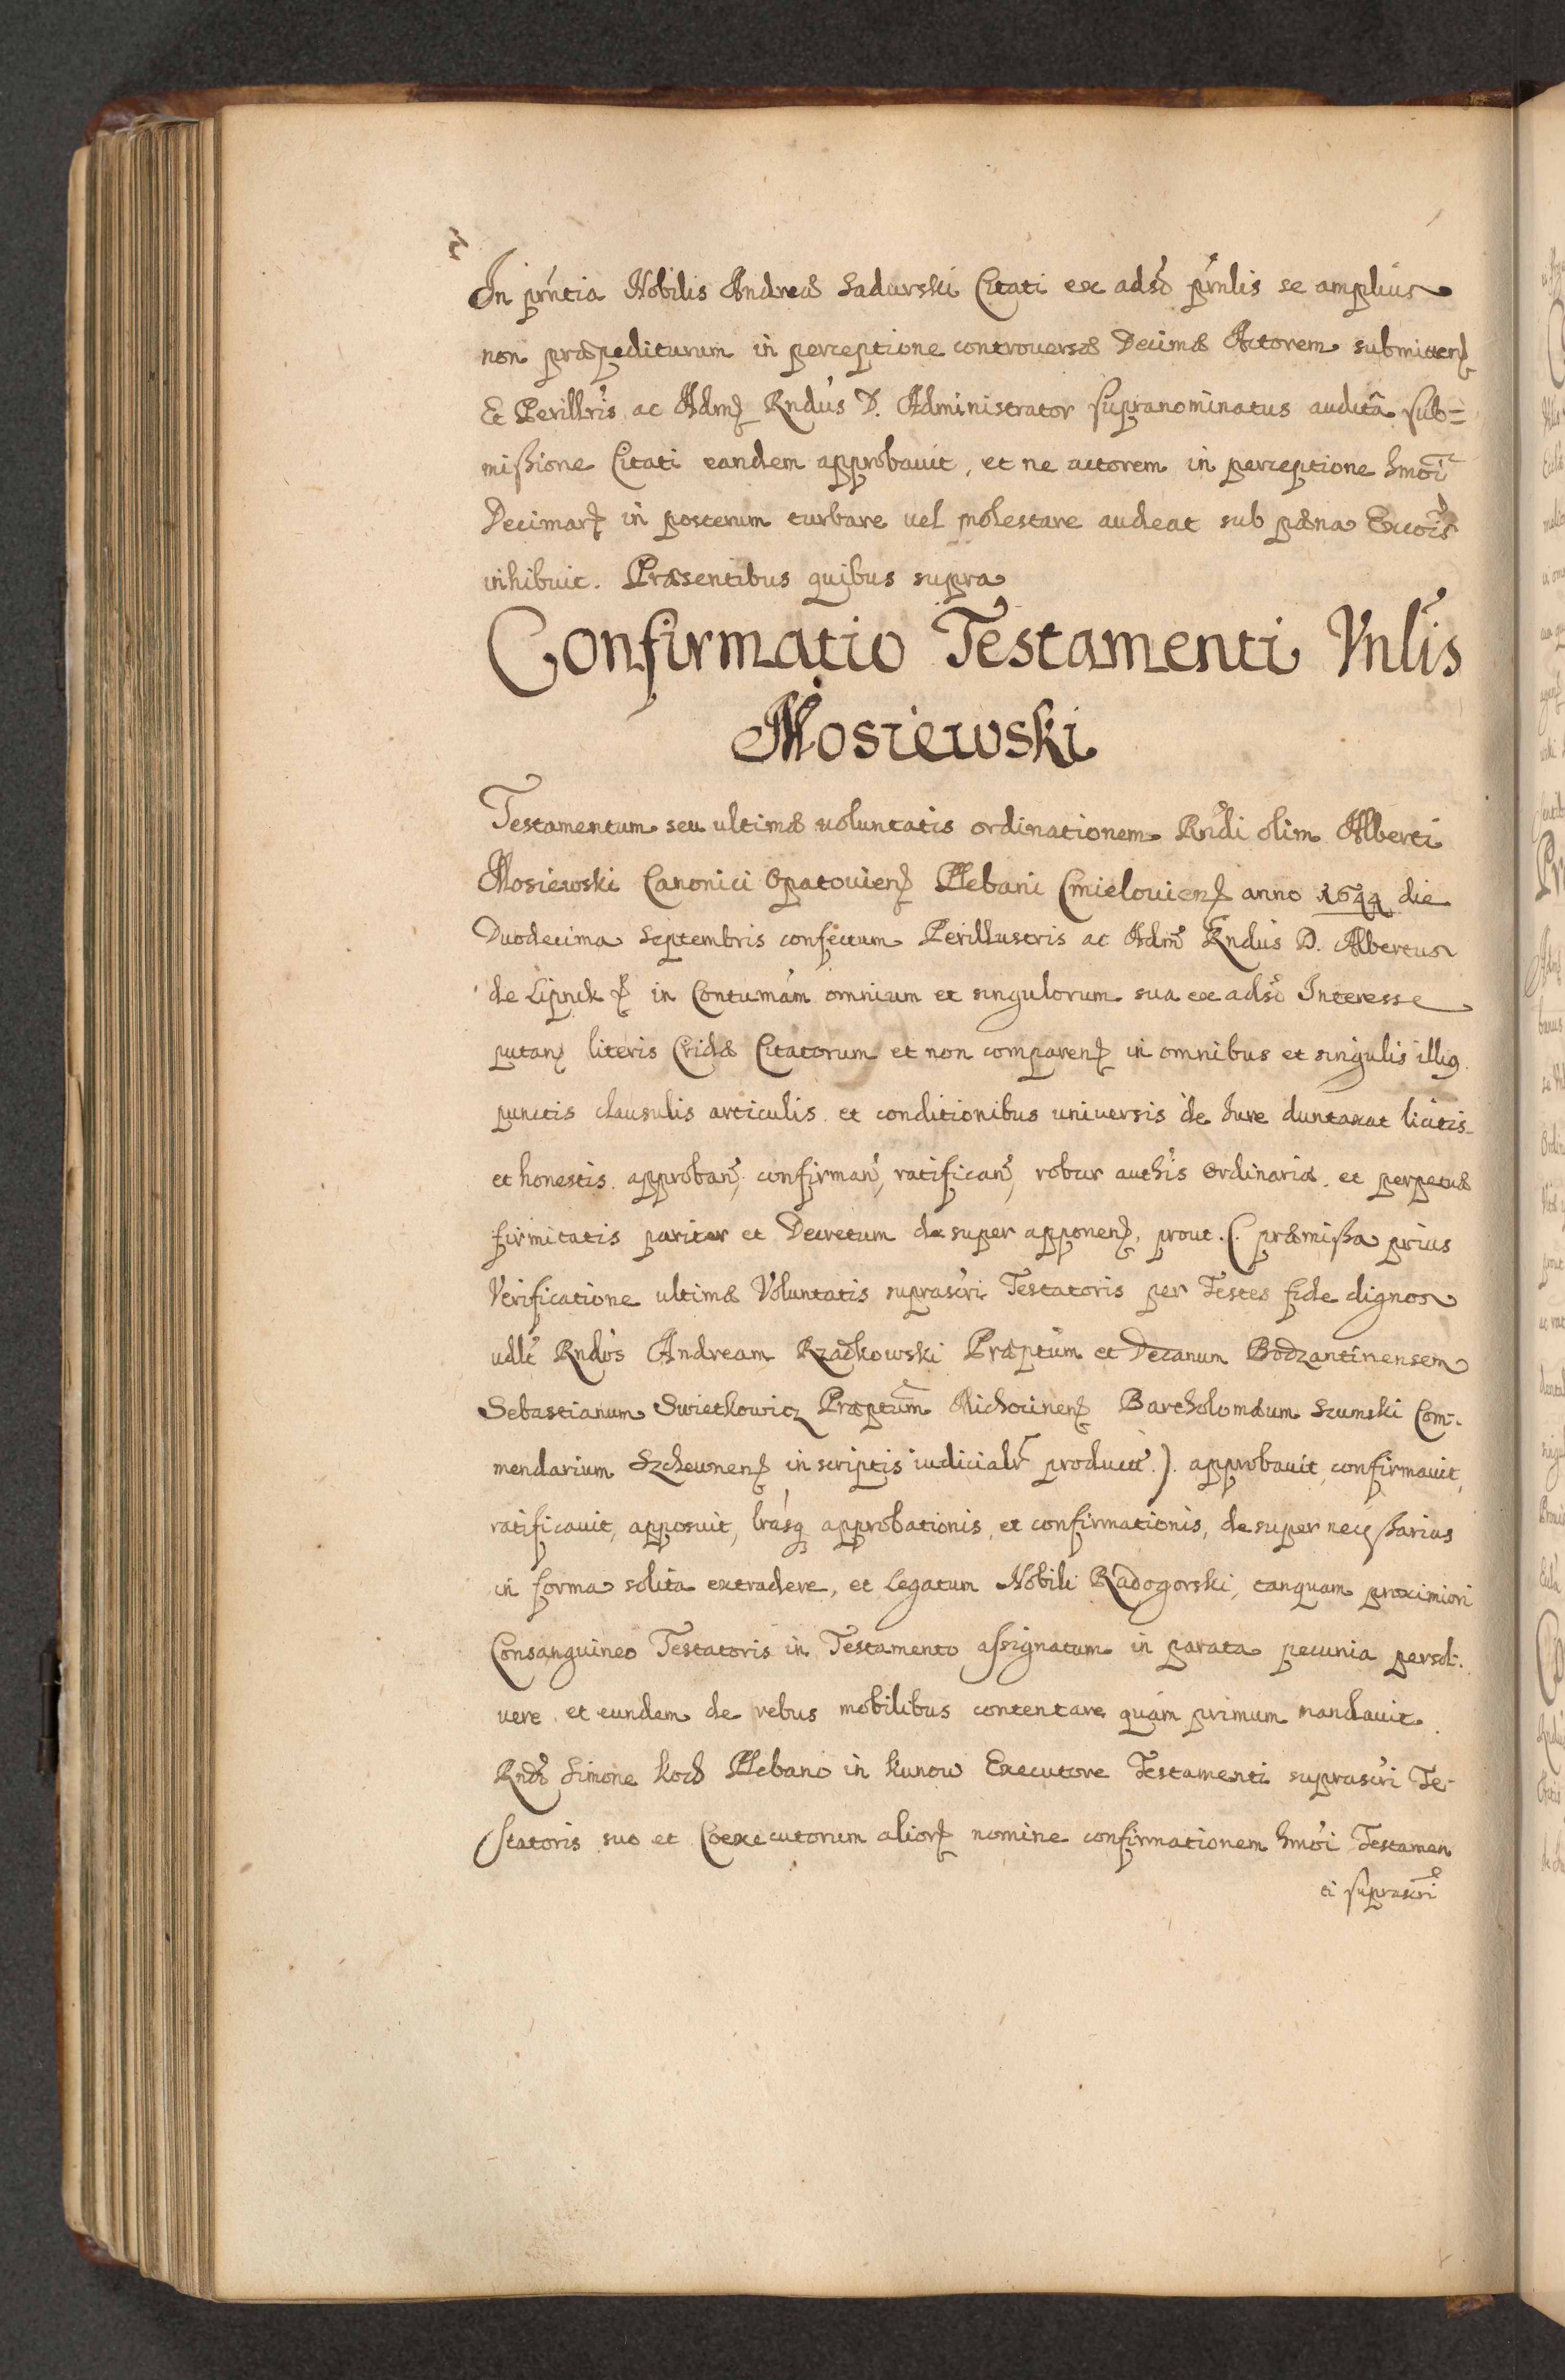 In pŕntia Nobilis Andreæ Sadurski Citati ex adső pŕnlis se amplius
non præpediturum in perceptione controuersæ Decimæ Actorem submitteñ
Et Perillris ac Admȝ Rndus D. Administrator supranominatus audita sub=
missione Citati eandem approbauit, et ne actorem in perceptione hmoi
Decimarȝ in posterum turbare uel molestare audeat sub pæna Excois
inhibuit. Præsentibus quibus supra
Confirmatio Testamenti Vnlis
Mosiewski
Testamentum seu ultimæ uoluntatis ordinationem Rndi olim Alberti
Mosiewski Canonici Opatouienȝ Plebani Cmielouienȝ anno 1644 die
Duodecima Septembris confectum Perillustris ac Adm Rndus D. Albertus
de Lipnik in Contumam omnium et singulorum sua ex adso Interesse
putanȝ literis Cridæ Citatorum et non comparenȝ in omnibus et singulis illiq
punctis clausulis articulis et conditionibus uniuersis de Iure duntaxat licitis
et honestis approbanȝ, confirmanȝ, ratificanȝ, robur authis Ordinariæ et perpetuæ
firmitatis pariter et Decretum desuper apponenȝ, prout. (. præmissa prius
Verificatione ultimæ Voluntatis suprascri Testatoris per Testes fide dignos
udlt Rndos Andream Rzaćkowski Præptum et Decanum Bodzantinensem
Sebastianum Swietkowicz Præptum Michouinenȝ Bartholomæum Szumski Com-
mendarium Szcheunenȝ in scriptis iudicialr product.). approbauit, confirmauit,
ratificauit, apposuit, lrasq approbationis, et confirmationis, desuper necessarias
in forma solita extradere, et Legatum Nobili Radogorski, tanquam proximiori
Consanguineo Testatoris in Testamento assignatum in parata pecunia persol-
uere et eundem de rebus mobilibus contentare quám primum mandauit
Rndo Simone Koch Plebano in Kunow Executore Testamenti suprascri Te-
statoris suo et Coexecutorum aliorȝ nomine confirmationem hmoi Testamen
ti suprascri